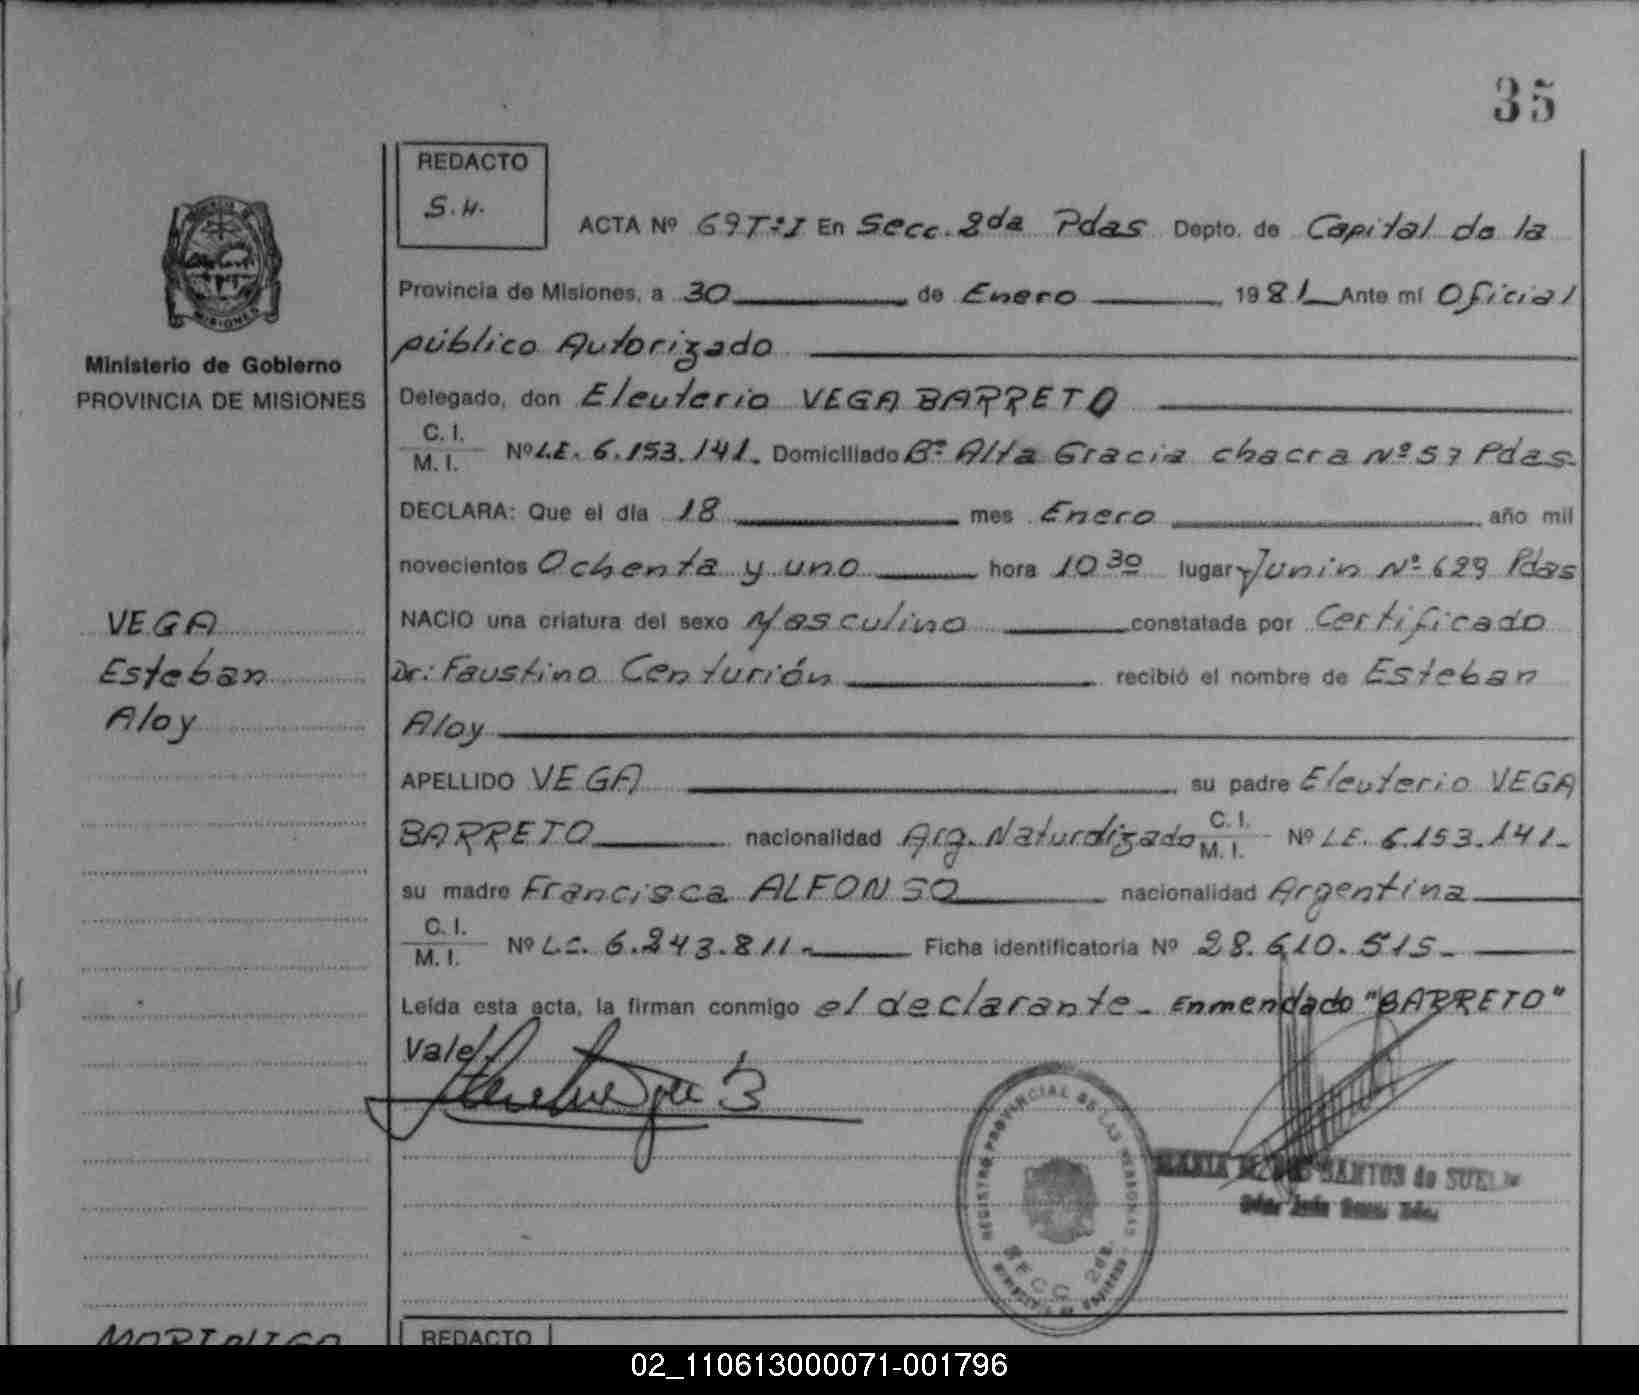 35
REDACTO
S.H.
ACTA Nº 69 Tº I En Secc. 2da Pdas Depto. de Capital de la
Provincia de Misiones, a 30 de Enero 1981 Ante mí Oficial
público Autorizado
Ministerio de Gobierno
PROVINCIA DE MISIONES
Delegado, don Eleuterio VEGA BARRETO
C. I.
M. I. Nº L.E. 6.153.141. Domiciliado Bº Alta Gracia chacra Nº 57 Pdas.
DECLARA: Que el día 18 mes Enero año mil
novecientos Ochenta y uno hora 10 30 lugar Junin Nº 629 Pdas
VEGA
Esteban
Aloy
NACIO una criatura del sexo Masculino constatada por Certificado
Dr: Faustino Centurión recibió el nombre de Esteban
Aloy
APELLIDO VEGA su padre Eleuterio VEGA
BARRETO nacionalidad Arg. Naturalizado C. I. M. I. Nº L.E. 6.153.141.
su madre Francisca ALFONSO nacionalidad Argentina
C. I.
M. I. Nº L.C. 6.243.811. Ficha identificatoria Nº 28.610.515.
Leída esta acta, la firman conmigo el declarante. Enmendado "BARRETO"
Vale.
REGISTRO PROVINCIAL DE LAS PERSONAS
SECC 2da
SANTOS de SUEL
MORINIGO
REDACTO
02_110613000071-001796